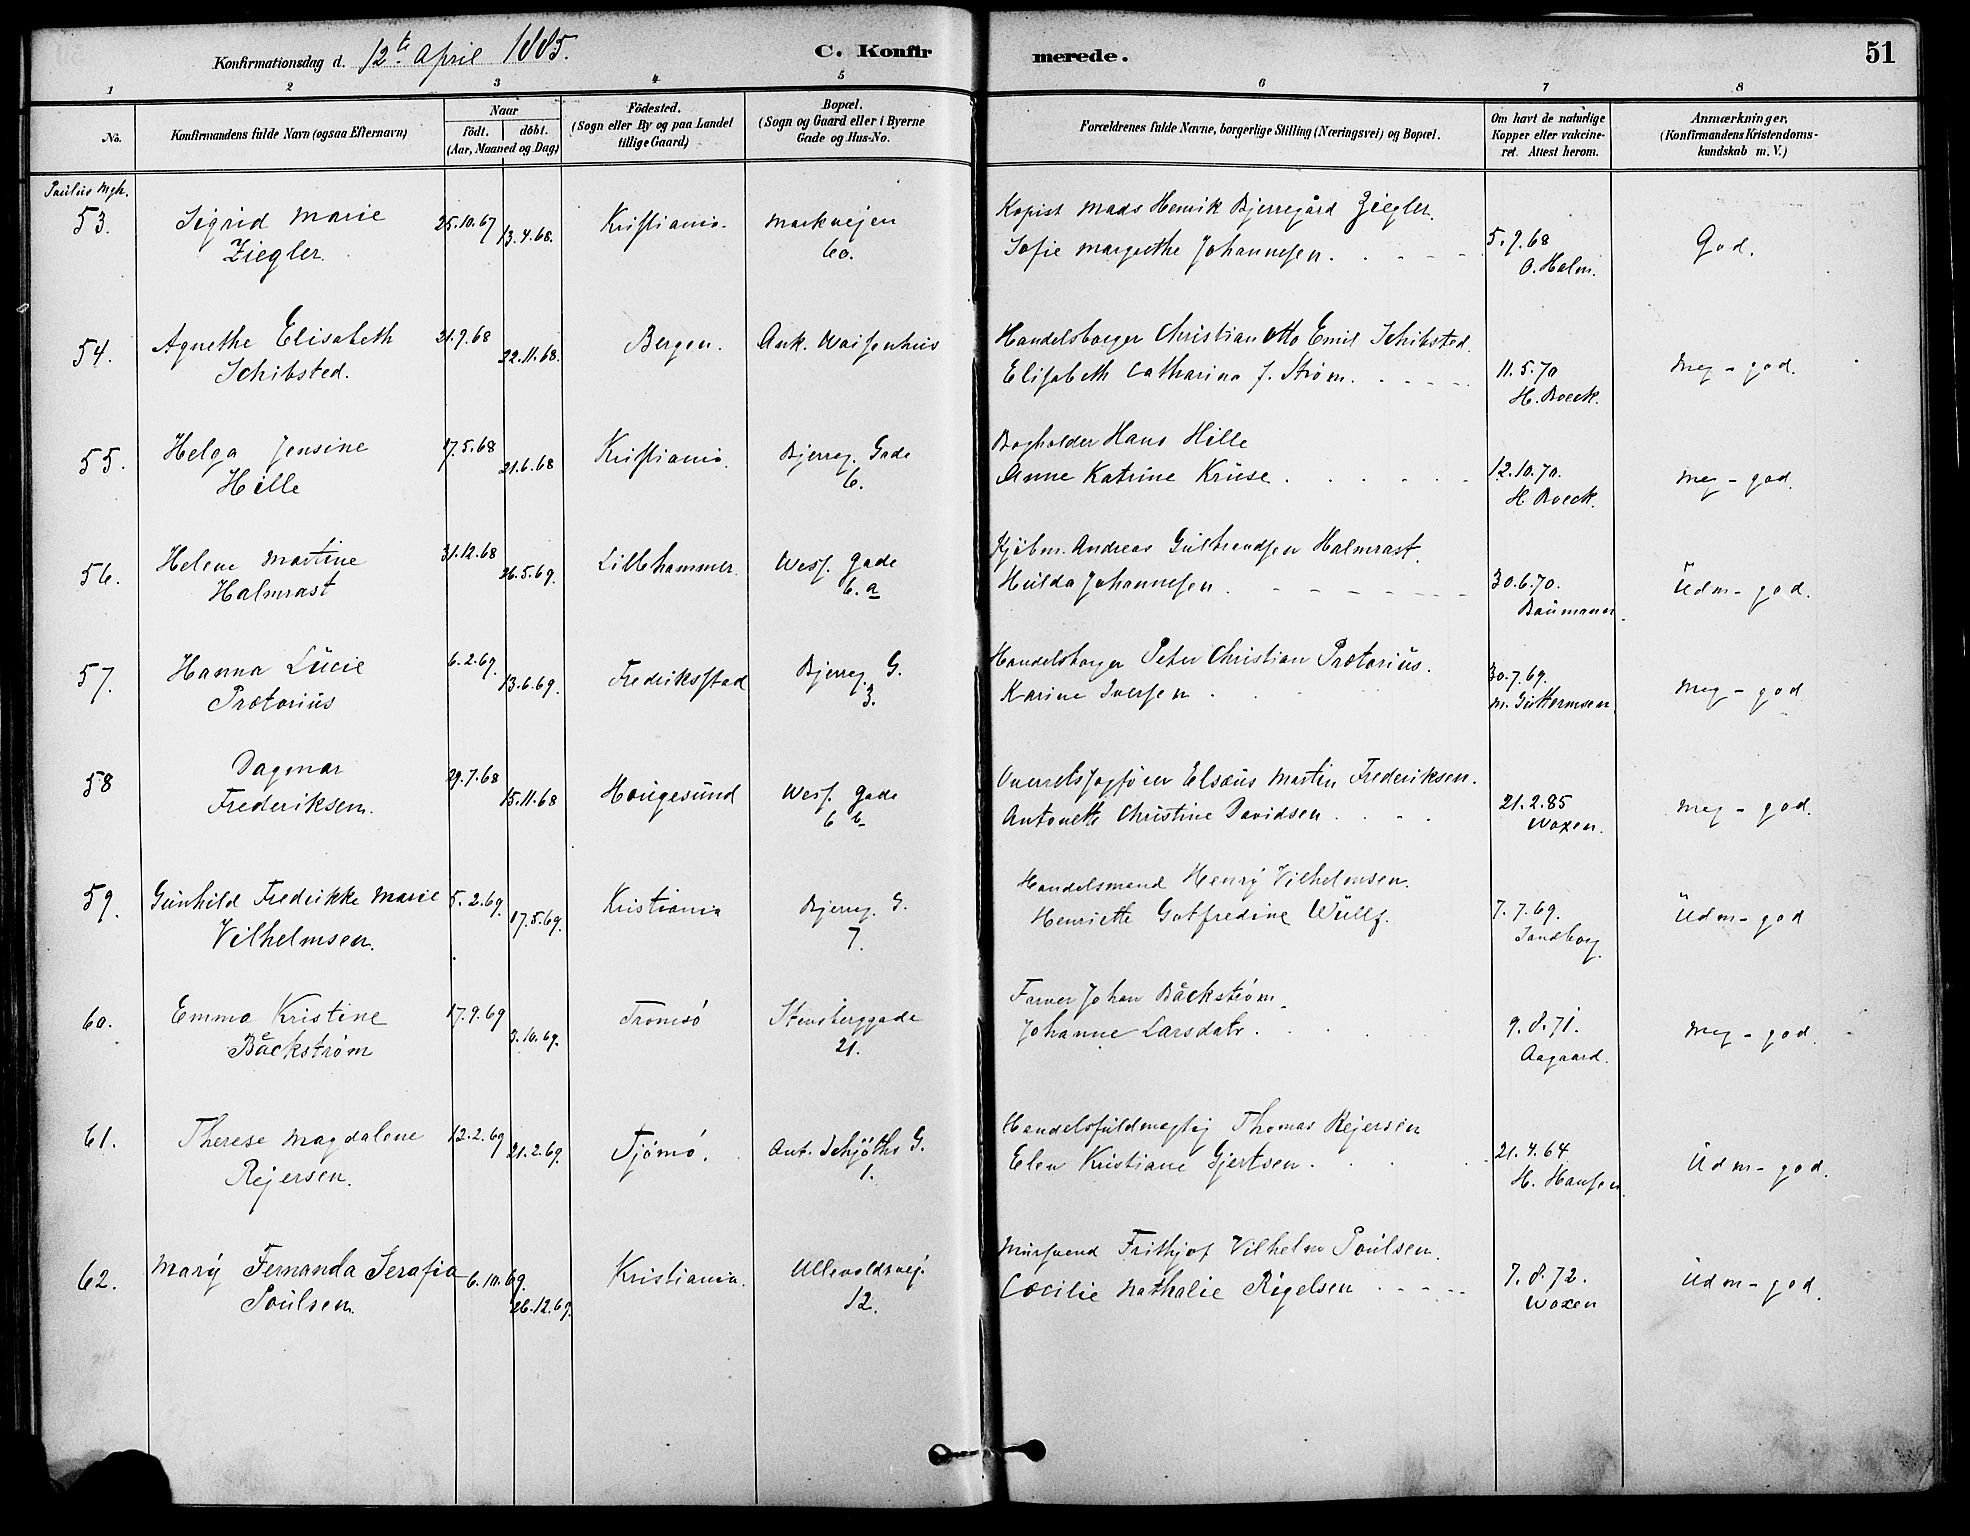 Konfirmationsdag d. 12te April 1885.
C. Konfirmerede.
51
1 2 3 4 5 6 7 8
No.
Konfirmandens fulde Navn (ogsaa Efternavn)
Naar
födt. döbt.
(Aar, Maaned og Dag)
Födested.
(Sogn eller By og paa Landet
tillige Gaard)
Bopæl.
(Sogn og Gaard eller i Byerne
Gade og Hus-No.
Forældrenes fulde Navne, borgerlige Stilling (Næringsvei) og Bopæl.
Om havt de naturlige
Kopper eller vakcine-
ret. Attest herom.
Anmærkninger,
(Konfirmandens Kristendoms-
kundskab m. V.)
Paulus Mgh.
53. Sigrid Marie
Ziegler.
25.10.67
13.4.68.
Kristiania.
Markvejen
60.
Kopist Mads Henrik Bjerregård Ziegler.
Sofie Margrethe Johannesen.
5.9.68
O. Holm.
God.
54. Agnethe Elisabeth
Schibsted.
21.9.68
22.11.68.
Bergen.
Ank. Waisenhus
Handelsborger Christian Otto Emil Schibsted.
Elisabeth Catharina J. Strøm.
11.5.70
H. Boeck.
Meg - god.
55. Helga Jensine
Hille
17.5.68
21.6.68
Kristiania.
Bjerreg. Gade
6.
Bogholder Hans Hille
Anne Katrine Kruse.
12.10.70.
H. Boeck.
Meg - god.
56. Helene Martine
Halmrast
31.12.68
26.5.69.
Lillehammer.
Wess. gade
6. a
Kjöbm. Andreas Gulbrandsen Halmrast.
Hulda Johannesen.
30.6.70.
Baumann.
Udm - god.
57. Hanna Lucie
Prætorius
6.2.69.
13.6.69.
Fredriksstad
Bjerreg. G.
3.
Handelsborger Peter Christian Prætorius.
Karine Iversen.
30.7.69.
M. Guttormsen.
Meg - god
58 Dagmar
Frederiksen.
29.7.68
15.11.68
Haugesund
Wess. gade
6 b
Overretssagfører Elsæus Martin Frederiksen.
Antonette Christine Davidsen.
21.2.85
Woxen.
Meg - god.
59. Gunhild Fredrikke Marie
Vilhelmsen.
5.2.69.
17.5.69.
Kristiania
Bjerreg. G.
7.
Handelsmand Henry Vilhelmsen.
Henriette Gotfredine Wullf.
7.7.69.
Sandborg
Udm - god
60. Emma Kristine
Bäckstrøm
17.9.69
3.10.69.
Tromsø
Stensberggade
21.
Farver Johan Bäckstrøm.
Johanne Larsdatr.
9.8.71.
Aagaard.
Meg - god.
61. Therese Magdalene
Rejersen.
12.2.69
21.2.69.
Tjømø.
Ant. Schjøths G.
1.
Handelsfuldmægtig Thomas Rejersen
Elen Kristiane Gjertsen.
21.4.64
H. Hansen.
Udm - god.
62. Mary Fernanda Serafia
Poulsen.
6.10.69.
26.12.69.
Kristiania.
Ullevoldsvej.
12.
Mursvend Frithjof Vilhelm Poulsen.
Cæcilie Nathalie Rigelsen
7.8.72.
Woxen
Udm - god.